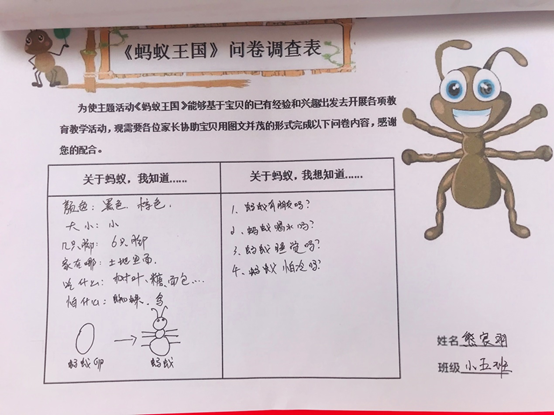 《蚂蚁王国》问卷调查表
为使主题活动《蚂蚁王国》能够基于宝贝的已有经验和兴趣出发去开展各项教
育教学活动，现需要各位家长协助宝贝用图文并茂的形式完成以下问卷内容，感谢
您的配合。
关于蚂蚁，我知道......
颜色：黑色 棕色.
大小：小
几只脚：6只脚
家在哪：土地里面.
吃什么：树叶、糖、面包...
怕什么：蜘蛛.
蚂蚁卵
蚂蚁
关于蚂蚁，我想知道......
1、蚂蚁有脚吗？
2、蚂蚁喝水吗？
3、蚂蚁睡觉吗？
4、蚂蚁怕冷吗？
姓名 熊宸羽
班级 小五班